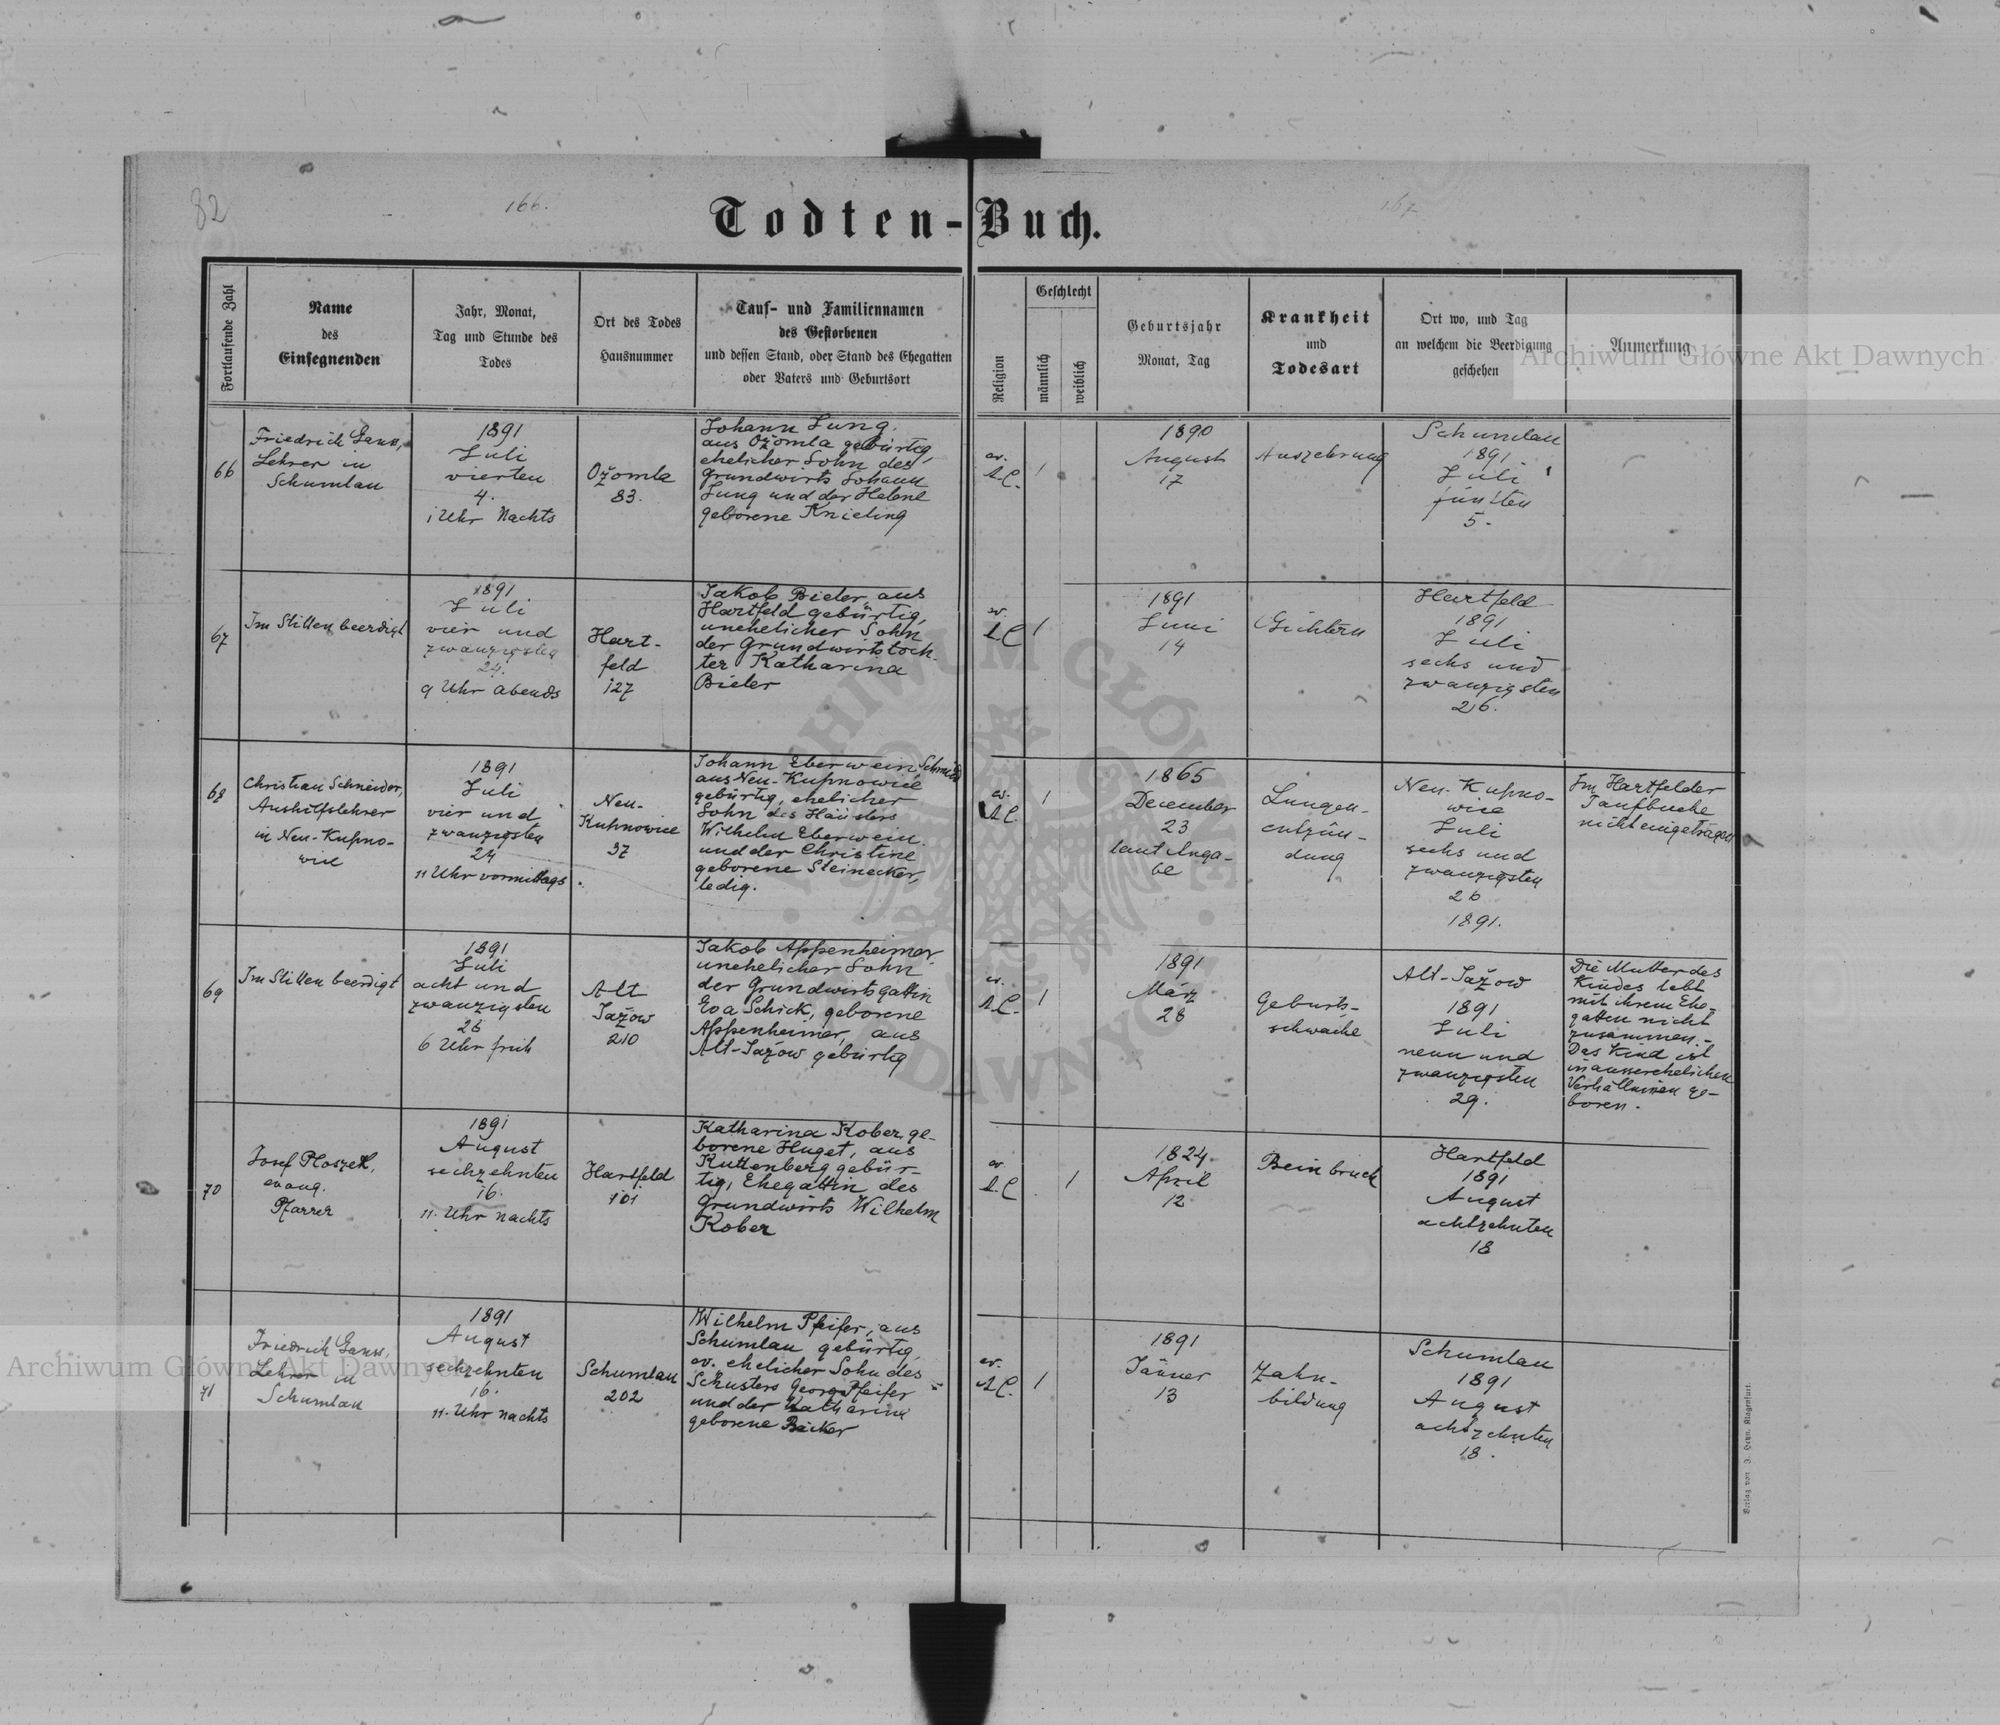 82
166.
167
Todten-Buch.
Fortlaufende Zahl
Name
des
Einsegnenden
Jahr, Monat,
Tag und Stunde des
Todes
Ort des Todes
Hausnummer
Tauf- und Familiennamen
des Gestorbenen
und dessen Stand, oder Stand des Ehegatten
oder Vaters und Geburtsort
Religion
Geschlecht
männlich
weiblich
Geburtsjahr
Monat, Tag
Krankheit
und
Todesart
Ort wo, und Tag
an welchem die Beerdigung
geschehen
Anmerkung
66
Friedrich Ganss,
Lehrer in
Schumlau
1891
Juli
vierten
4.
1 Uhr Nachts
Ožomla
83.
Johann Jung
aus Ožomla gebürtig,
ehelicher Sohn des
Grundwirts Johann
Jung und der Helene
geborene Knieling
ev.
A.C.
1
1890
August
17
Auszehrung
Schumlau
1891
Juli
fünften
5.
67
Im Stillen beerdigt
1891
Juli
vier und
zwanzigsten
24.
9 Uhr abends
Hart-
feld
127
Jakob Bieler aus
Hartfeld gebürtig,
unehelicher Sohn
der Grundwirtstoch-
ter Katharina
Bieler
ev.
A.C.
1
1891
Juni
14
Gichtern
Hartfeld
1891
Juli
sechs und
zwanzigsten
26.
68
Christian Schneider,
Aushilfslehrer
in Neu-Kupno-
wice
1891
Juli
vier und
zwanzigsten
24
11 Uhr vormittags.
Neu-
Kupnowice
37
Johann Eberwein Schmied
aus Neu-Kupnowice
gebürtig, ehelicher
Sohn des Häuslers
Wilhelm Eberwein
und der Christine
geborene Steinecker,
ledig.
ev.
A.C.
1
1865
December
23
laut Anga-
be
Lungen-
entzün-
dung
Neu-Kupno-
wice
Juli
sechs und
zwanzigsten
26
1891.
Im Hartfelder
Taufbuche
nicht eingetragen
69
Im Stillen beerdigt
1891
Juli
acht und
zwanzigsten
28
6 Uhr früh
Alt
Jažow
210
Jakob Appenheimer
unehelicher Sohn
der Grundwirtsgattin
Eva Schick, geborene
Appenheimer, aus
Alt-Jažow gebürtig
ev.
A.C.
1
1891
März
28
Geburts-
schwäche
Alt-Jažow
1891
Juli
neun und
zwanzigsten
29.
Die Mutter des
Kindes lebt
mit ihrem Ehe-
gatten nicht
zusammen.-
Das Kind ist
in ausserehelichen
Verhältnissen ge-
boren.
70
Josef Ploszek,
evang.
Pfarrer
1891
August
sechzehnten
16.
11. Uhr nachts
Hartfeld
101
Katharina Kober, ge-
borene Huget, aus
Kuttenberg gebür-
tig, Ehegattin des
Grundwirts Wilhelm
Kober
ev.
A.C.
1
1824
April
12
Beinbruch
Hartfeld
1891
August
achtzehnten
18
71
Friedrich Ganss,
Lehrer in
Schumlau
1891
August
sechzehnten
16.
11. Uhr nachts
Schumlau
202
Wilhelm Pfeifer, aus
Schumlau gebürtig,
ev. ehelicher Sohn des
Schusters Georg Pfeifer
und der Katharina
geborene Bäcker
ev.
A.C.
1
1891
Jänner
13
Zahn-
bildung
Schumlau
1891
August
achtzehnten
18.
Verlag von J. Heyn, Klagenfurt.
Archiwum Główne Akt Dawnych
Archiwum Główne Akt Dawnych
ARCHIWUM GŁÓWNE
DAWNYCH